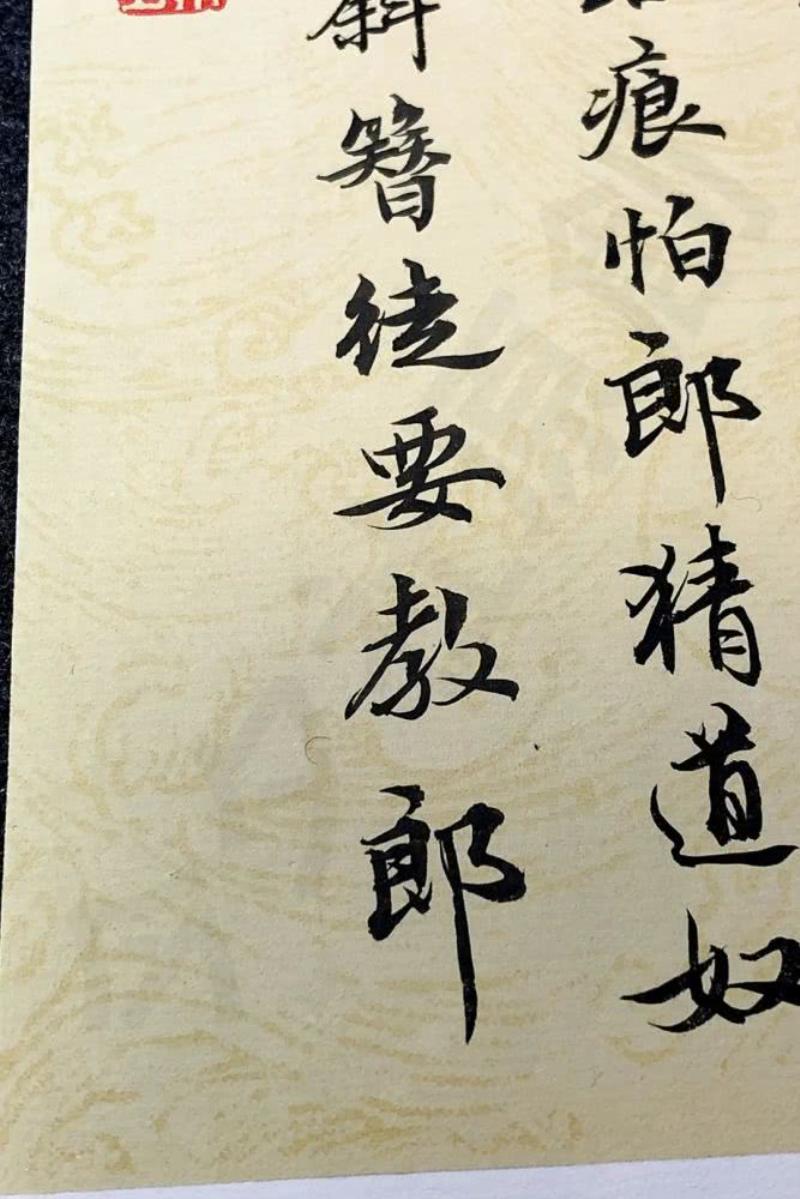 痕怕郎猜道奴
斜簪徒要教郎